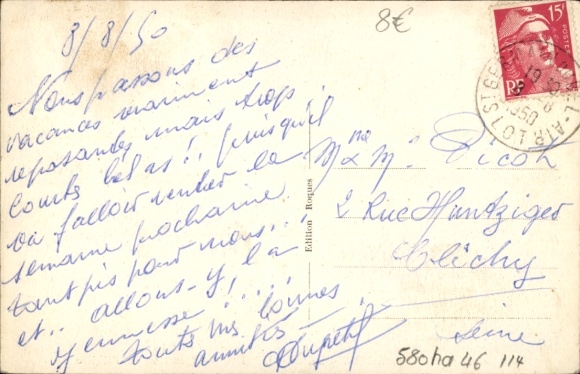 8/8/50
Nous passons des
vacances vraiment
reposantes mais trop
courtes hélas!! puisqu'il
va falloir rentrer la
semaine prochaine
tant pis pour nous...!
et.. allons-y la
jeunesse!....!
toutes nos bonnes
amitiés
Edition Roques
Mme & M. Picot
2 Rue Huntziger
Clichy
Seine
8€
15F
POSTES
RF
1950
58oha46 114